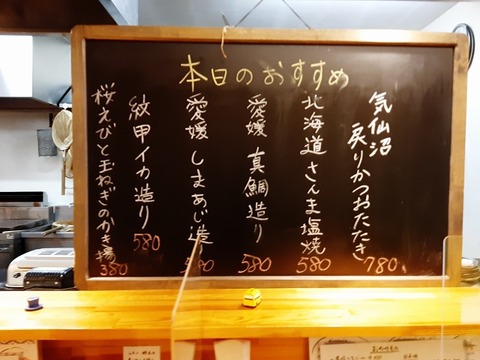 本日のおすすめ
気仙沼 戻りかつおたたき 780
北海道 さんま塩焼 580
愛媛 真鯛造り 580
愛媛 しまあじ造り 580
紋甲イカ造り 580
桜えびと玉ねぎのかき揚 380